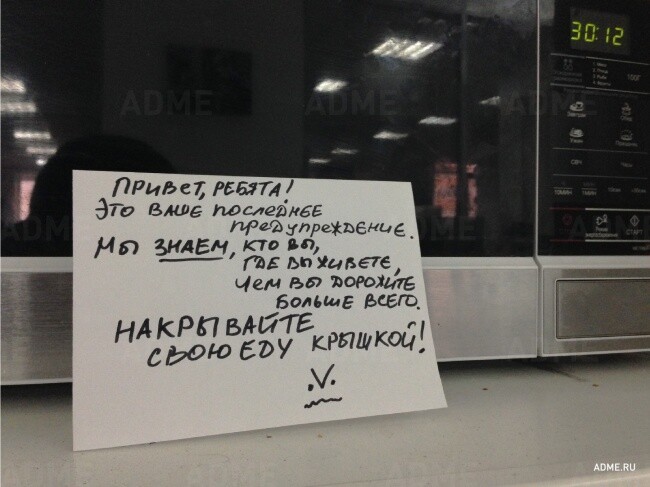 ПРИВЕТ, РЕБЯТА!
ЭТО ВАШЕ ПОСЛЕДНЕЕ
ПРЕДУПРЕЖДЕНИЕ.
МЫ ЗНАЕМ, КТО ВЫ,
ГДЕ ВЫ ЖИВЕТЕ,
ЧЕМ ВЫ ДОРОЖИТЕ
БОЛЬШЕ ВСЕГО.
НАКРЫВАЙТЕ
СВОЮ ЕДУ КРЫШКОЙ!
.V.
30:12
СВЧ
СТАРТ
ADME
ADME.RU